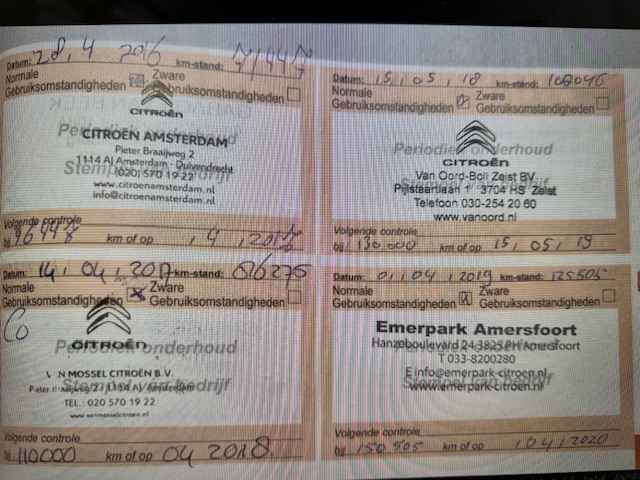 Datum: 28, 4 2016 km-stand:
Normale Zware
Gebruiksomstandigheden Gebruiksomstandigheden
Periodiek onderhoud
CITROËN
CITROËN AMSTERDAM
Pieter Braaijweg 2
1114 AJ Amsterdam - Duivendrecht
Stempel van bedrijf
(020) 570 19 22
www.citroenamsterdam.nl
info@citroenamsterdam.nl
Volgende controle
bij km of op , 4 ,
Datum: 15, 05, 18 km-stand:
Normale Zware
Gebruiksomstandigheden Gebruiksomstandigheden
Periodiek onderhoud
CITROËN
Van Oord-Boll Zeist BV
Stempel van bedrijf
Pijlstaartlaan 1 3704 HS Zeist
Telefoon 030-254 20 60
www.vanoord.nl
Volgende controle
bij 130.000 km of op 15, 05, 19
Datum: 14, 04, 2017 km-stand: 86275
Normale Zware
Gebruiksomstandigheden Gebruiksomstandigheden
CITROËN
Periodiek onderhoud
VAN MOSSEL CITROËN B.V.
Stempel van bedrijf
Pieter Braaijweg 2 - 1114 AJ Amsterdam
TEL.: 020 570 19 22
www.vanmosselcitroen.nl
Volgende controle
bij 110000 km of op 04 2018
Datum: 01, 04, 2019 km-stand: 125505
Normale Zware
Gebruiksomstandigheden Gebruiksomstandigheden
Emerpark Amersfoort
Periodiek onderhoud
Hanzeboulevard 24 3825 PH Amersfoort
T 033-8200280
E info@emerpark-citroen.nl
Stempel van bedrijf
www.emerpark-citroen.nl
Volgende controle
bij 150 505 km of op 04, 2020